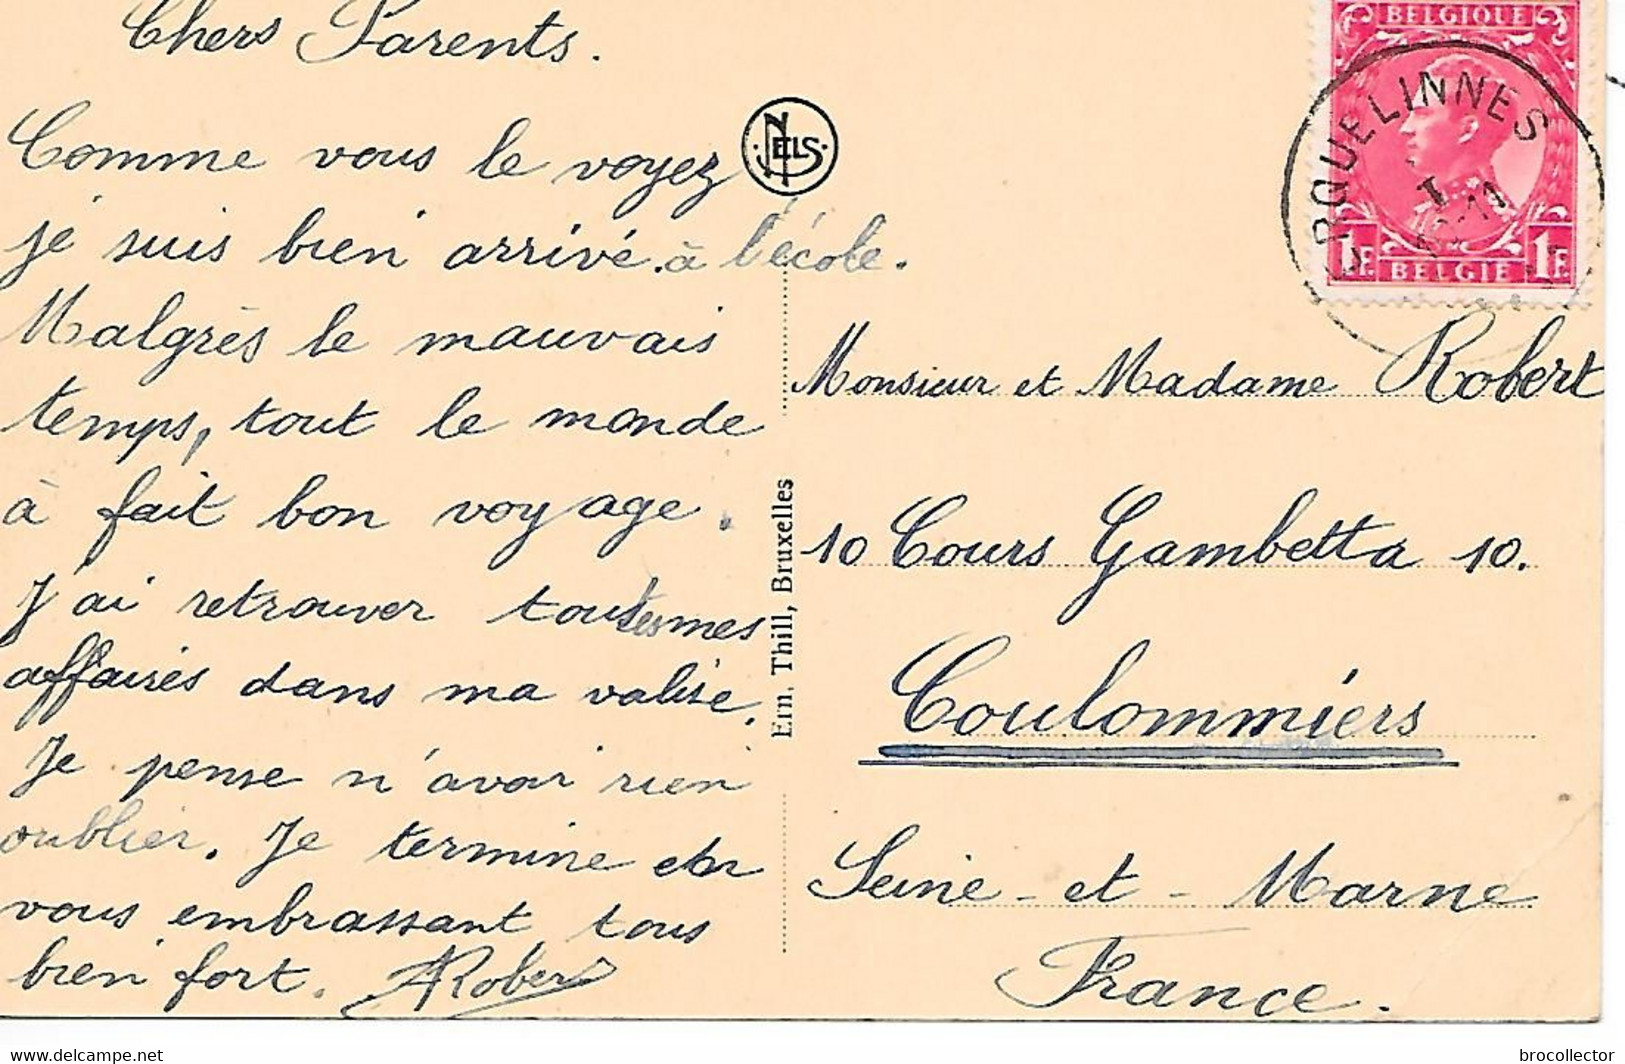 Chers Parents.
Comme vous le voyez
je suis bien arrivé. à l'école.
Malgrès le mauvais
temps, tout le monde
à fait bon voyage.
J'ai retrouver toutes mes
affaires dans ma valise.
Je pense n'avoir rien
oublier. Je termine en
vous embrassant tous
bien fort. Robert
NELS
Ern. Thill, Bruxelles
BELGIQUE
ERQUELINNES
1F. BELGIE 1F.
Monsieur et Madame Robert
10 Cours Gambetta 10.
Coulommiers
Seine-et-Marne
France.
delcampe.net
brocollector